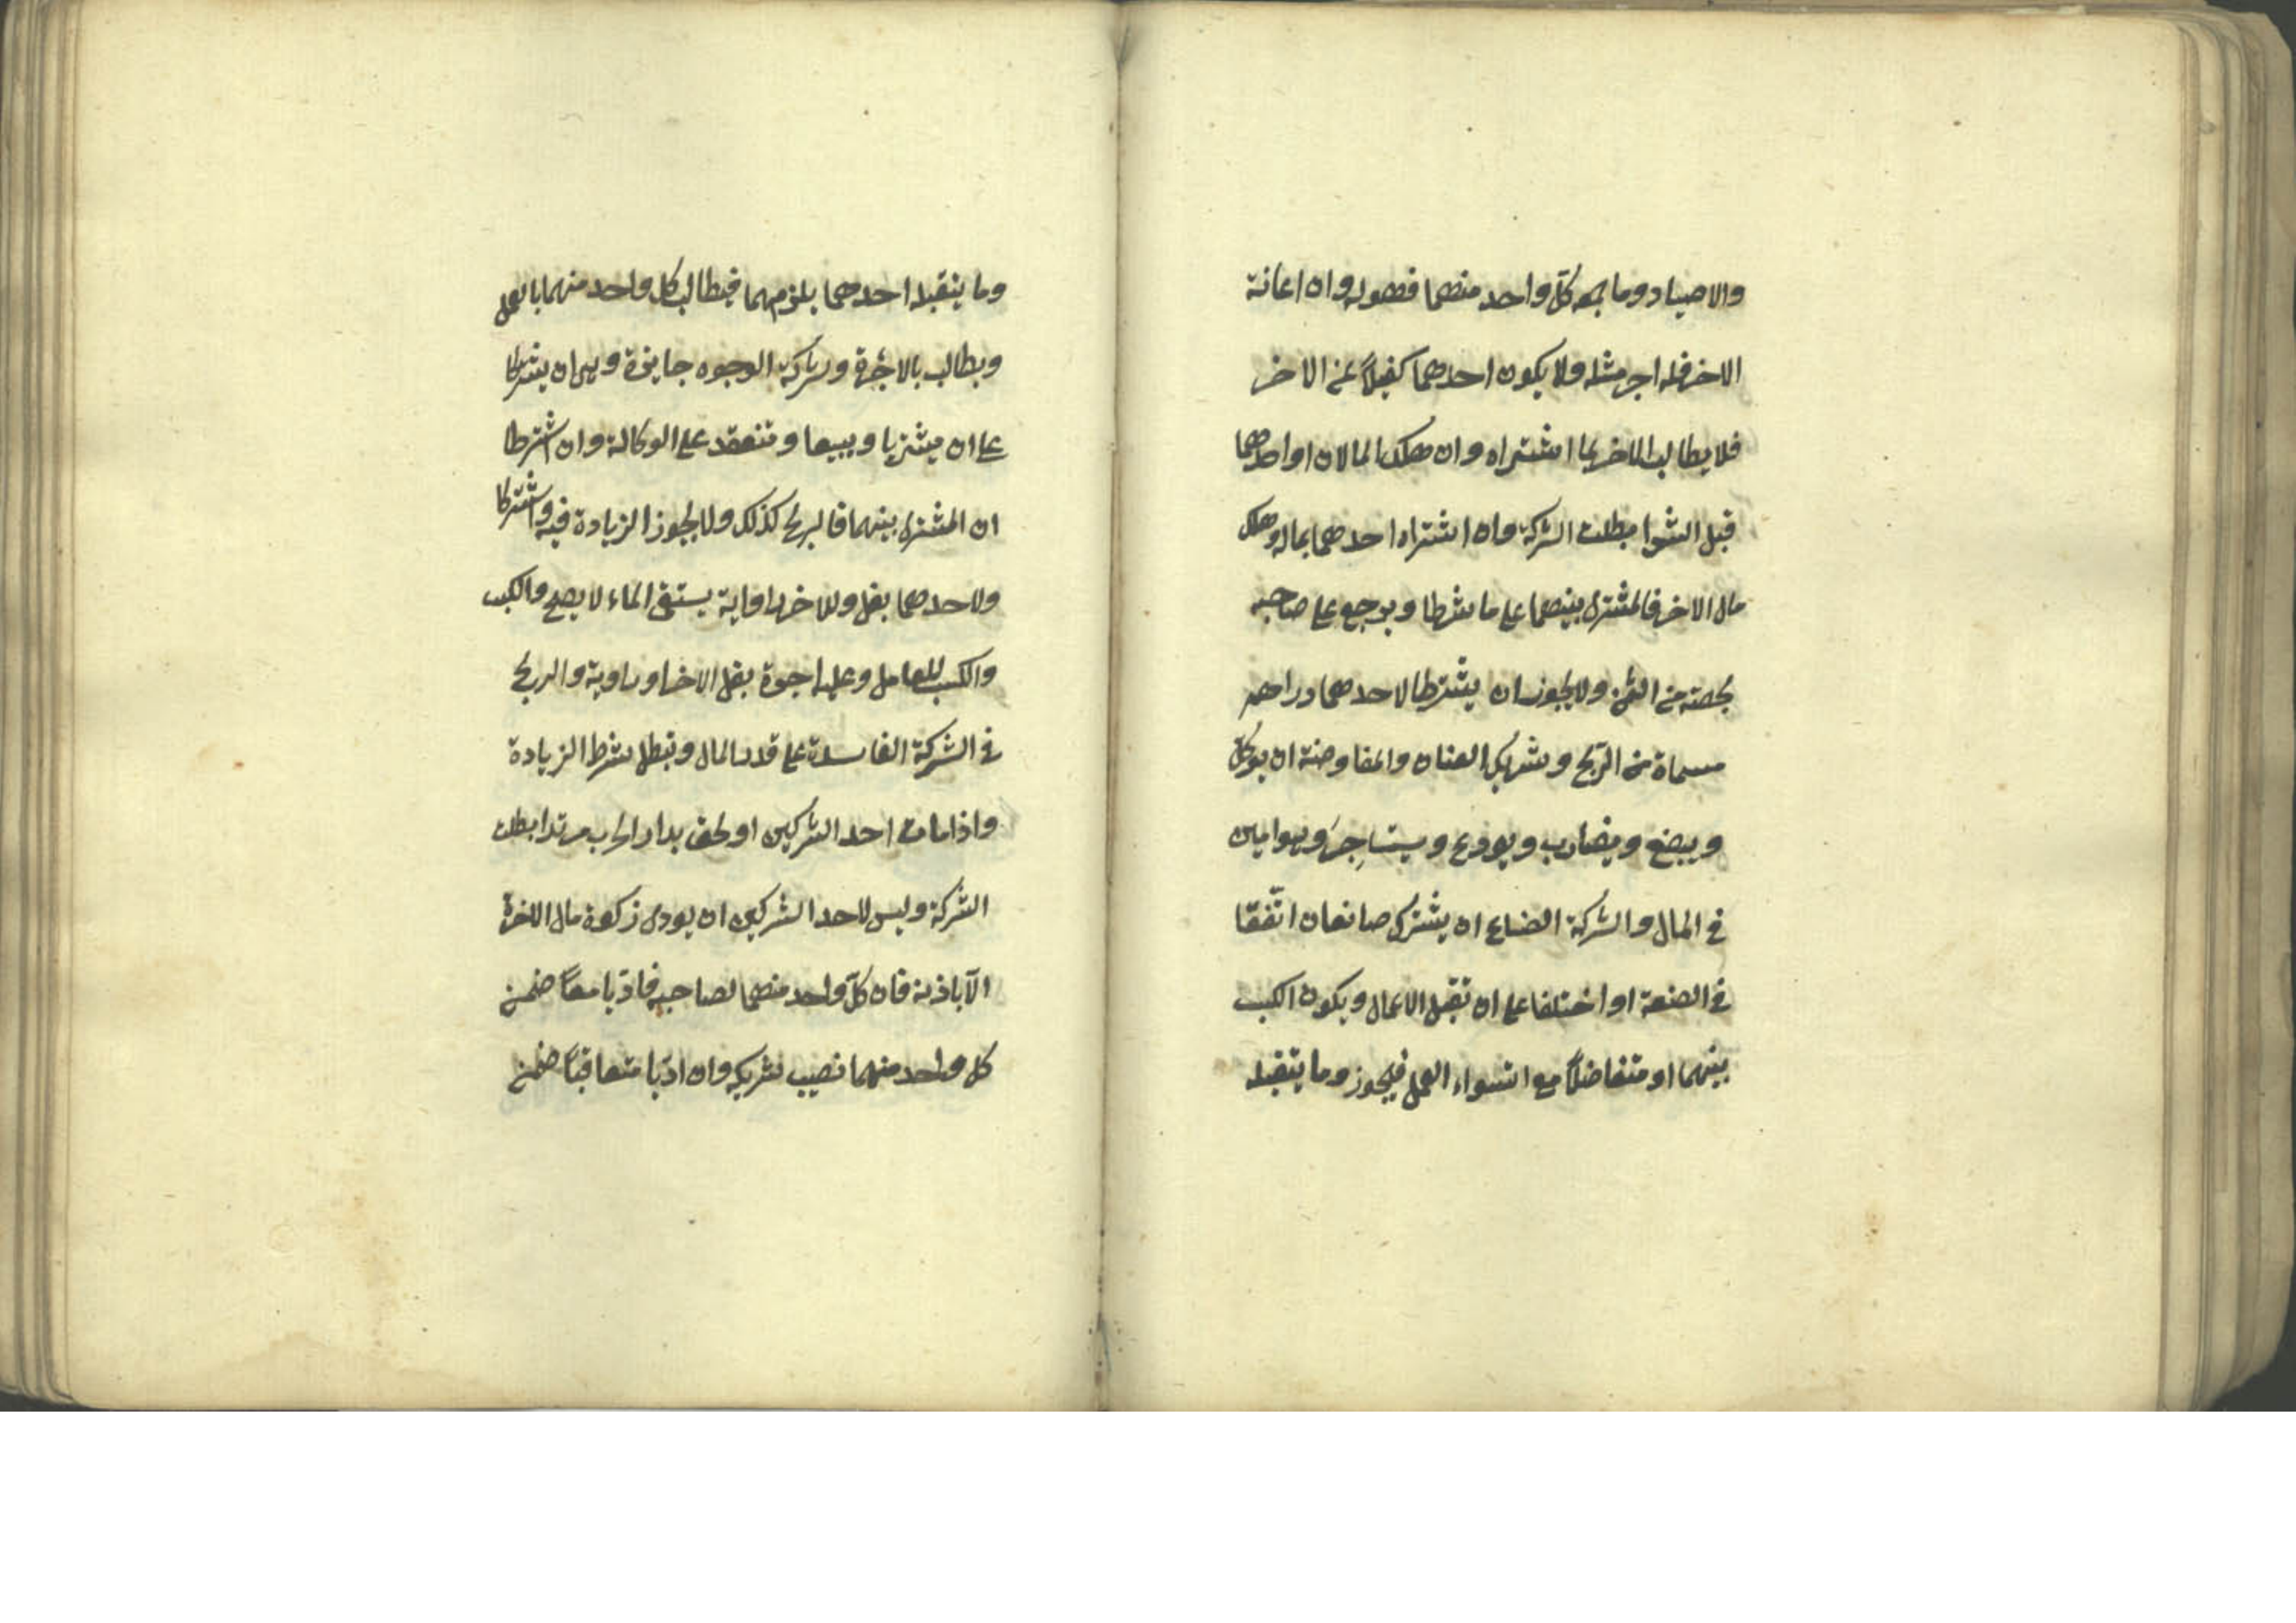 والاصياد وما جمعه كلّ واحد منهما فهو له وان اعانة
الاخر فله اجر مثله ولا يكون احدهما كفيلاً عن الاخر
فلا يطالب الاخر بما اشتراه وان هلك المالان او احدهما
قبل الشوا بطلت الشركة وان اشتراه احدهما بماله وهلك
مال الاخر فالمشترى بينهما على ما شرطا ويرجع على صاحبه
بحصته من الثمن ولا يجوز ان يشترطا لاحدهما دراهم
مسماة من الرّبح وشريك العنان والمفاوضة ان يوكلّ
ويبضع ويضارب ويودع ويستاجِرَ وهو امين
في المال والشركة الصنايع ان يشترك صانعان اتّفقا
في الصنعة او اختلفا على ان تقبل الاعمال ويكون الكسب
بينهما او متفاضلاً مع استواء العمل فيجوز وما يتقبله
وما يتقبله احدهما يلزمهما فيطالب كل واحد منهما بالعمل
ويطالب بالاجُرة وشركة الوجوه جايزة وهي ان يشتركا
على ان يشتريا ويبيعا وتنعقد على الوكالة وان اشترطا
ان المشترى بينهما فالربح كذلك ولا يجوز الزيادة فيه واشتركا
ولاحدهما بغل وللاخر راواية يستقى الماء لا يصح والكسب
والكسب للعامل وعليه اجرة بغل الاخر او راوية والربح
في الشركة الفاسدة على قدر المال وتبطل شرط الزيادة
واذا مات احد الشركين او لحق بدار الحرب مرتدا بطلت
الشركة وليس لاحد الشركين ان يودى زكوة مال الاخر
الاّ باذنه فان كلّ واحد منهما لصاحبه فادّيا معاً ضمن
كل واحد منهما نصيب شريكه وان ادّيا متعاقباً ضمن